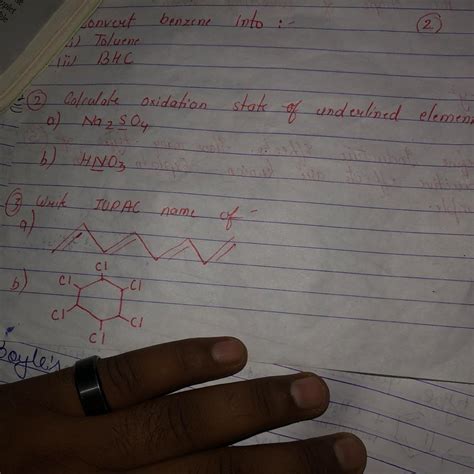 Convert benzene into :- (2)
(i) Toluene
(ii) BHC
(2) Calculate oxidation state of underlined elemen
a) Na2SO4
b) HNO3
(3) Write IUPAC name of :-
a)
b)
Cl
Cl Cl
Cl Cl
Cl
Boyle's